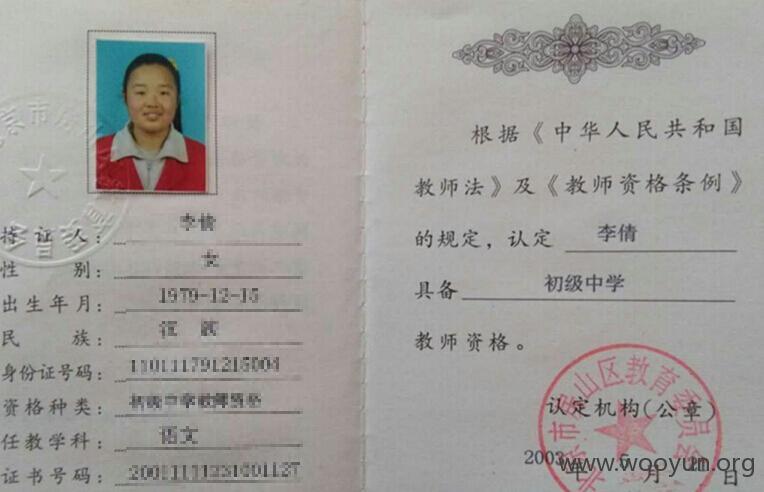 持证人：李倩
性别：女
出生年月：1979-12-15
民族：汉族
身份证号码：110111791215004
资格种类：初级中学教师资格
任教学科：语文
证书号码：20031117123100112​7
根据《中华人民共和国
教师法》及《教师资格条例》
的规定，认定 李倩
具备 初级中学
教师资格。
北京市房山区教育委员会
认定机构（公章）
2003年5月20日
www.wooyun.org